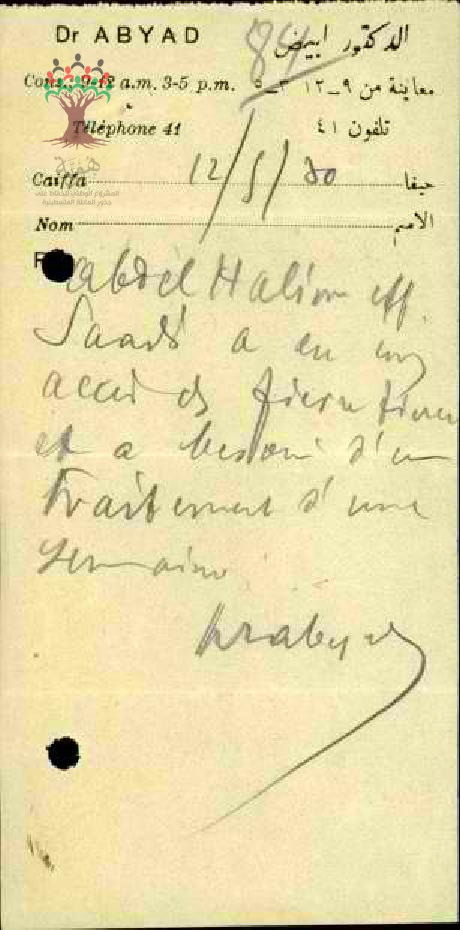 Dr ABYAD الدكتور ابيض
84
Cons. 9-12 a.m. 3-5 p.m. معاينة من ٩_١٢ ٣_٥
Téléphone 41 تلفون ٤١
هوية
Caiffa 12/5/30 حيفا
Nom الاسم
Abdel Halim eff.
Saadi a eu un
accès de fièvre
et a besoin d'un
traitement d'une
semaine
Drabyad